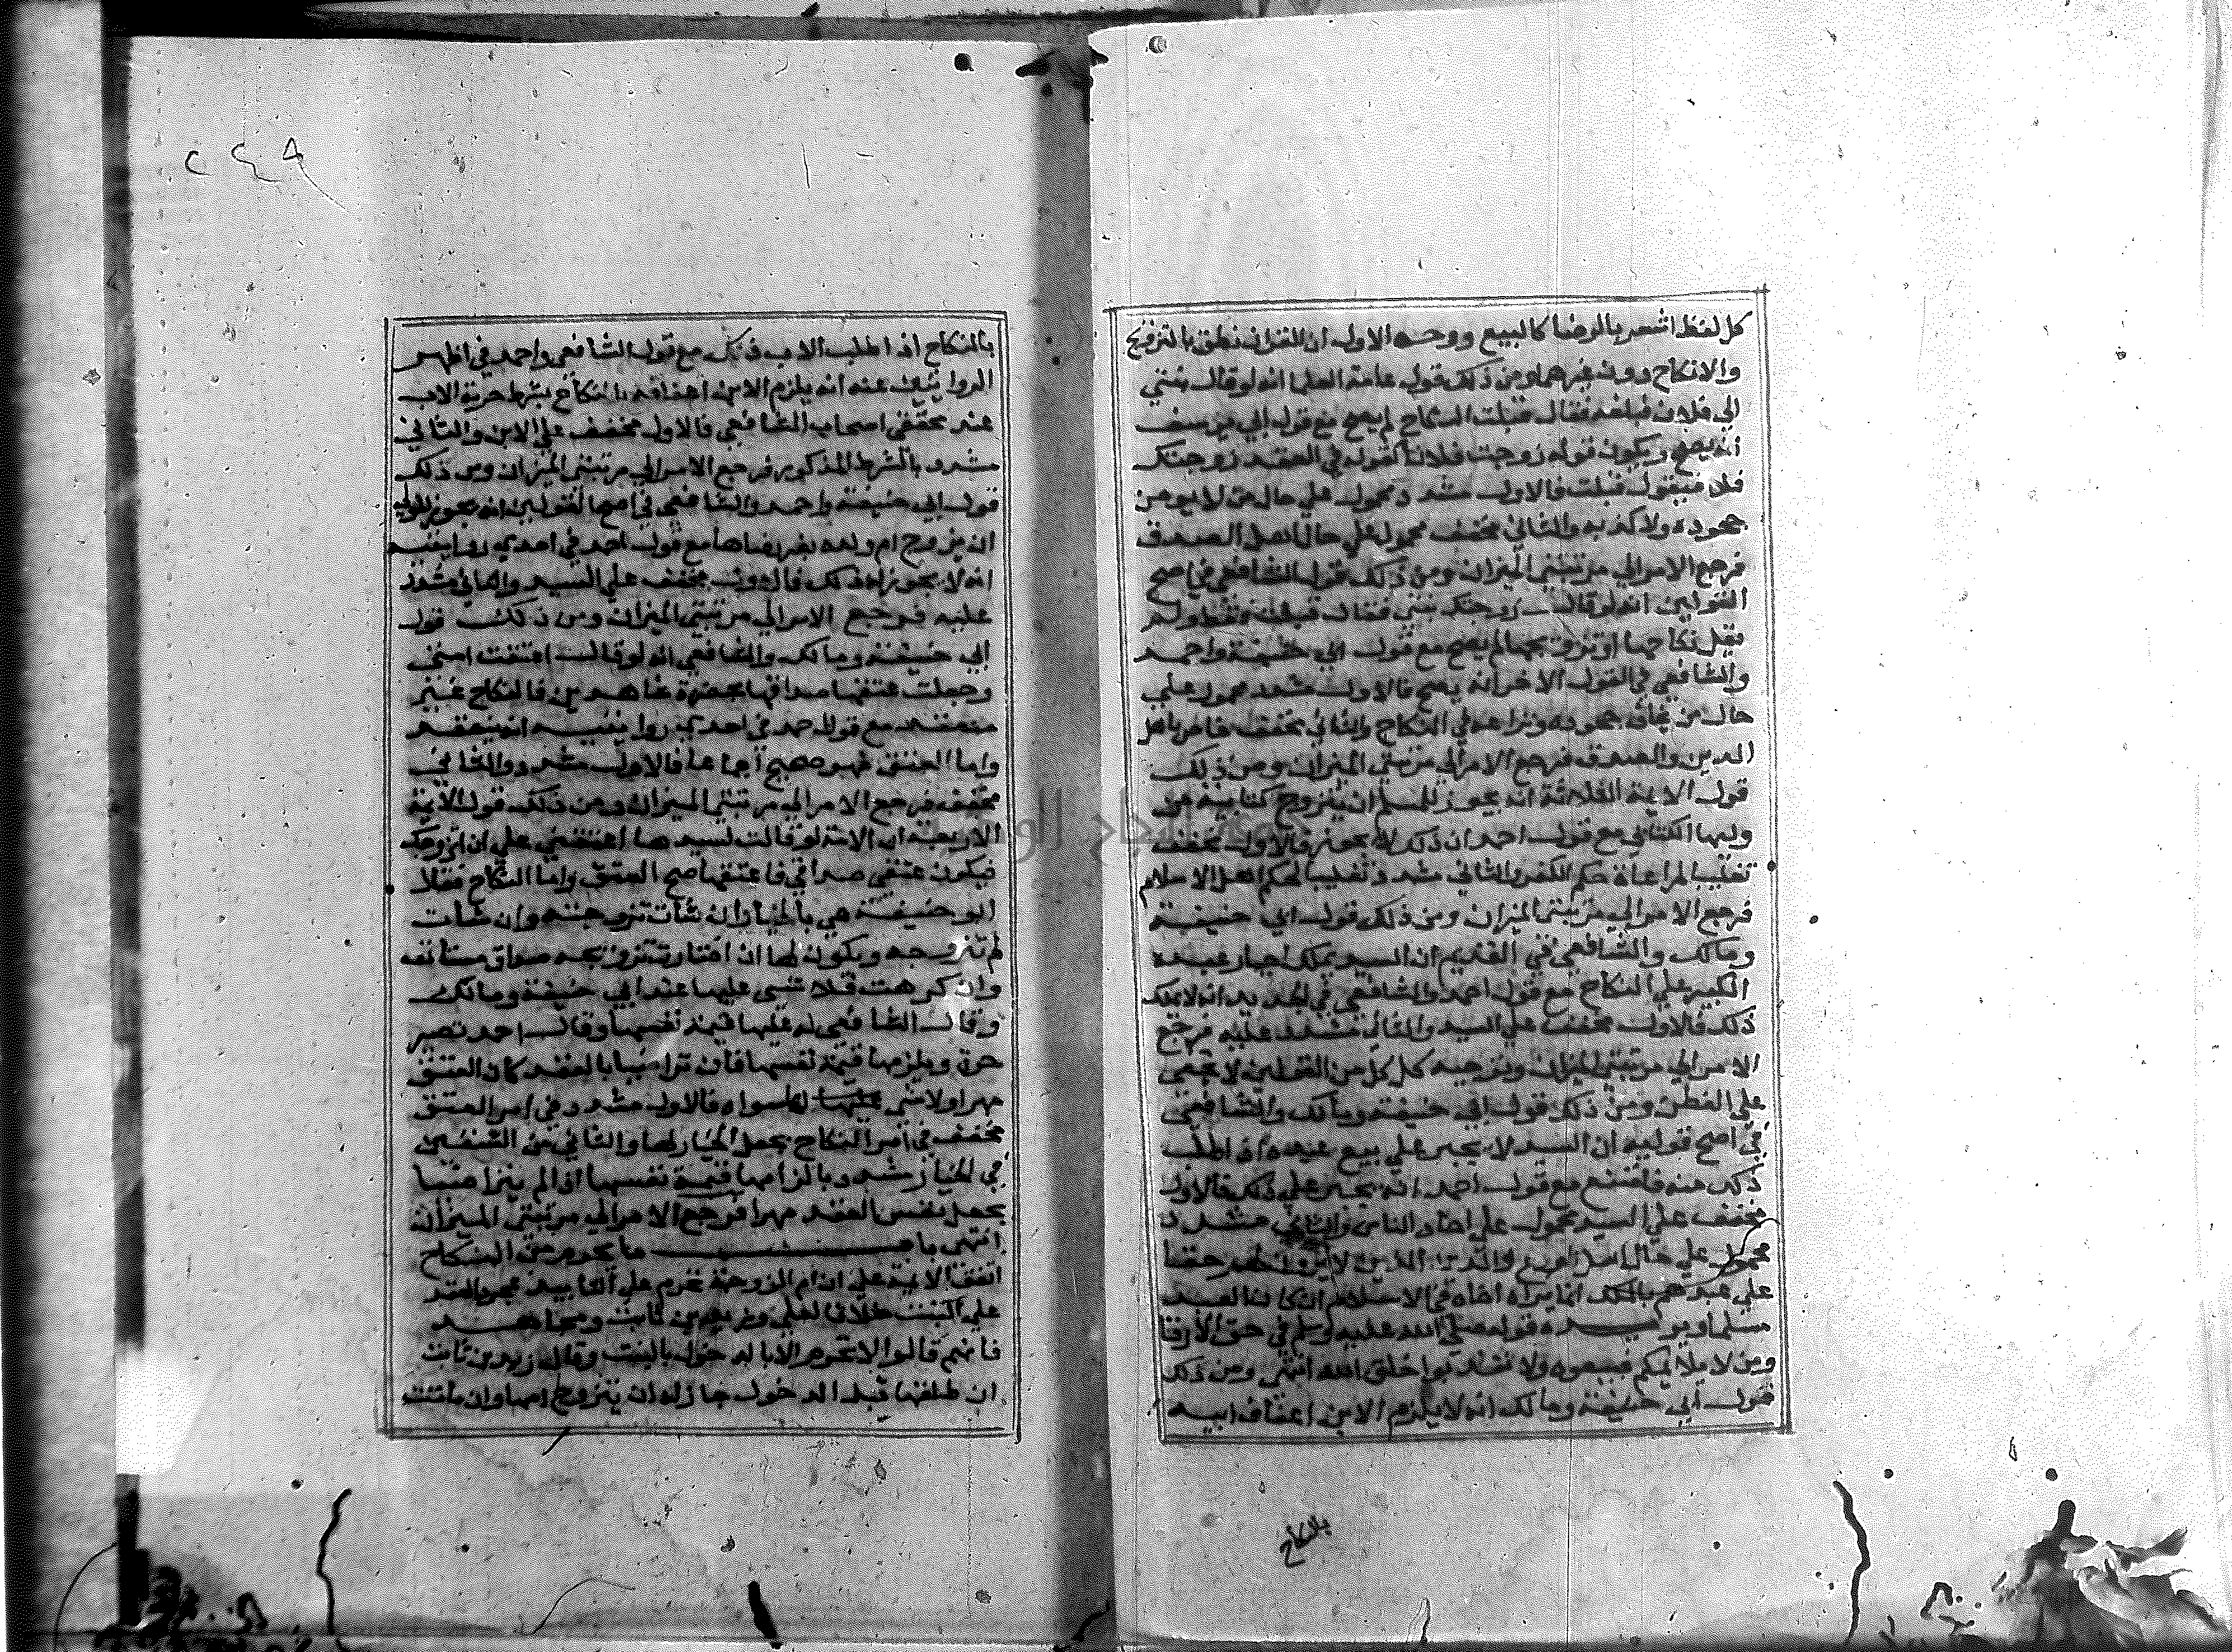 كل لفظ اشعر بالرضا كالبيع ووجه الاول ان القران نطق بالتزويج
والانكاح دون غيرهما ومن ذلك قول عامة العلما انه لو قال بنتي
الي فلان فبلغه فقال قبلت النكاح لم يصح مع قول ابي يوسف
انه يصح ويكون قوله زوجت فلانا كقوله في العقد زوجتك
فلا فيقول قبلت فالاول مشدد محمول علي حال من لا يومن
جحوده ولا كذبه والثاني مخفف محمول علي حال اهل الصدق
فرجع الامر الي مرتبتي الميزان ومن ذلك قول الشافعي في اصح
القولين انه لو قال زوجتك بنتي فقال قبلت فقط ولم
يقل نكاحها او تزويجها لم يصح مع قول ابي حنيفة واحمد
والشافعي في القول الاخر انه يصح فالاول مشدد محمول علي
حال من يخاف جحوده ونزاعه في النكاح والثاني مخفف خاص باهل
الدين والصدق فرجع الامر الي مرتبتي الميزان ومن ذلك
قول الايمة الثلاثة انه يجوز للمسلم ان يتزوج كتابية من
وليها الكتابي مع قول احمد ان ذلك لا يجوز فالاول مخفف
تغليبا لمراعاة حكم الكفر والثاني مشدد تغليبا لحكم اهل الاسلام
فرجع الامر الي مرتبتي الميزان ومن ذلك قول ابي حنيفة
ومالك والشافعي في القديم ان السيد يملك اجبار عبده
الكبير علي النكاح مع قول احمد والشافعي في الجديد انه لا يملك
ذلك فالاول مخفف علي السيد والثاني مشدد عليه فرجع
الامر الي مرتبتي الميزان وتوجيه كل من القولين لا يخفي
علي الفطن ومن ذلك قول ابي حنيفة ومالك والشافعي
في اصح قوليه ان السيد لا يجبر علي بيع عبده اذا طلب
ذلك منه فامتنع مع قول احمد انه يجبر علي ذلك فالاول
مخفف علي السيد محمول علي احاد الناس والثاني مشدد
محمول علي حال اهل الورع والدين الذين لا يرون لهم حقا
علي عبدهم بالملك انما يراه اخاه في الاسلام ان كان العبد
مسلما ويويده قوله صلي الله عليه وسلم في حق الارقا
ومن لا يلايمكم فبيعوه ولا تعذبوا خلق الله انتهي ومن ذلك
قول ابي حنيفة ومالك انه لا يلزم الابن اعفاف ابيه
بالنكاح
٢٤٩
بالنكاح اذا طلب الاب ذلك مع قول الشافعي واحمد في اظهر
الروايتين عنه انه يلزم الابن اعفافه بالنكاح بشرط حرية الاب
عند محققي اصحاب الشافعي فالاول مخفف علي الابن والثاني
مشدد بالشرط المذكور فرجع الامر الي مرتبتي الميزان ومن ذلك
قول ابي حنيفة واحمد والشافعي في اصح القولين انه يجوز للولي
ان يزوج ام ولده بغير رضاها مع قول احمد في احدي روايتيه
انه لا يجوز له ذلك فالاول مخفف علي السيد والثاني مشدد
عليه فرجع الامر الي مرتبتي الميزان ومن ذلك قول
ابي حنيفة ومالك والشافعي انه لو قال اعتقت امتي
وجعلت عتقها صداقها بحضرة شاهدين فالنكاح غير
منعقد مع قول احمد في احدي روايتيه انه ينعقد
واما العتق فهو صحيح اجماعا فالاول مشدد والثاني
مخفف فرجع الامر الي مرتبتي الميزان ومن ذلك قول الايمة
الاربعة ان الامة لو قالت لسيدها اعتقني علي ان اتزوجك
فيكون عتقي صداقي فاعتقها صح العتق واما النكاح فقال
ابو حنيفة هي بالخيار ان شات تزوجته وان شات
لم تتزوجه ويكون لها ان اختارت تزويجه صداق مستانفه
وان كرهت فلا شي عليها عند ابي حنيفة ومالك
وقال الشافعي له عليها قيمة نفسها وقال احمد تصير
حرة ويلزمها قيمة نفسها فان تراضيا بالعقد كان العتق
مهرا ولا شي لها سواه فالاول مشدد في امر العتق
مخفف في امر النكاح بجعل الخيار لها والثاني من الشقين
في الخيار مشدد بالزامها قيمة نفسها اذا لم يتراضيا
بجعل نفس العقد مهرا فرجع الامر الي مرتبتي الميزان
انتهي باب ما يحرم من النكاح
اتفق الايمة علي ان ام الزوجة تحرم علي التابيد بمجرد العقد
علي البنت خلافا لعلي وزيد بن ثابت ومجاهد
فانهم قالوا لا تحرم الا بالدخول بالبنت وقال زيد بن ثابت
ان طلقها قبل الدخول جاز له ان يتزوج امها وان ماتت